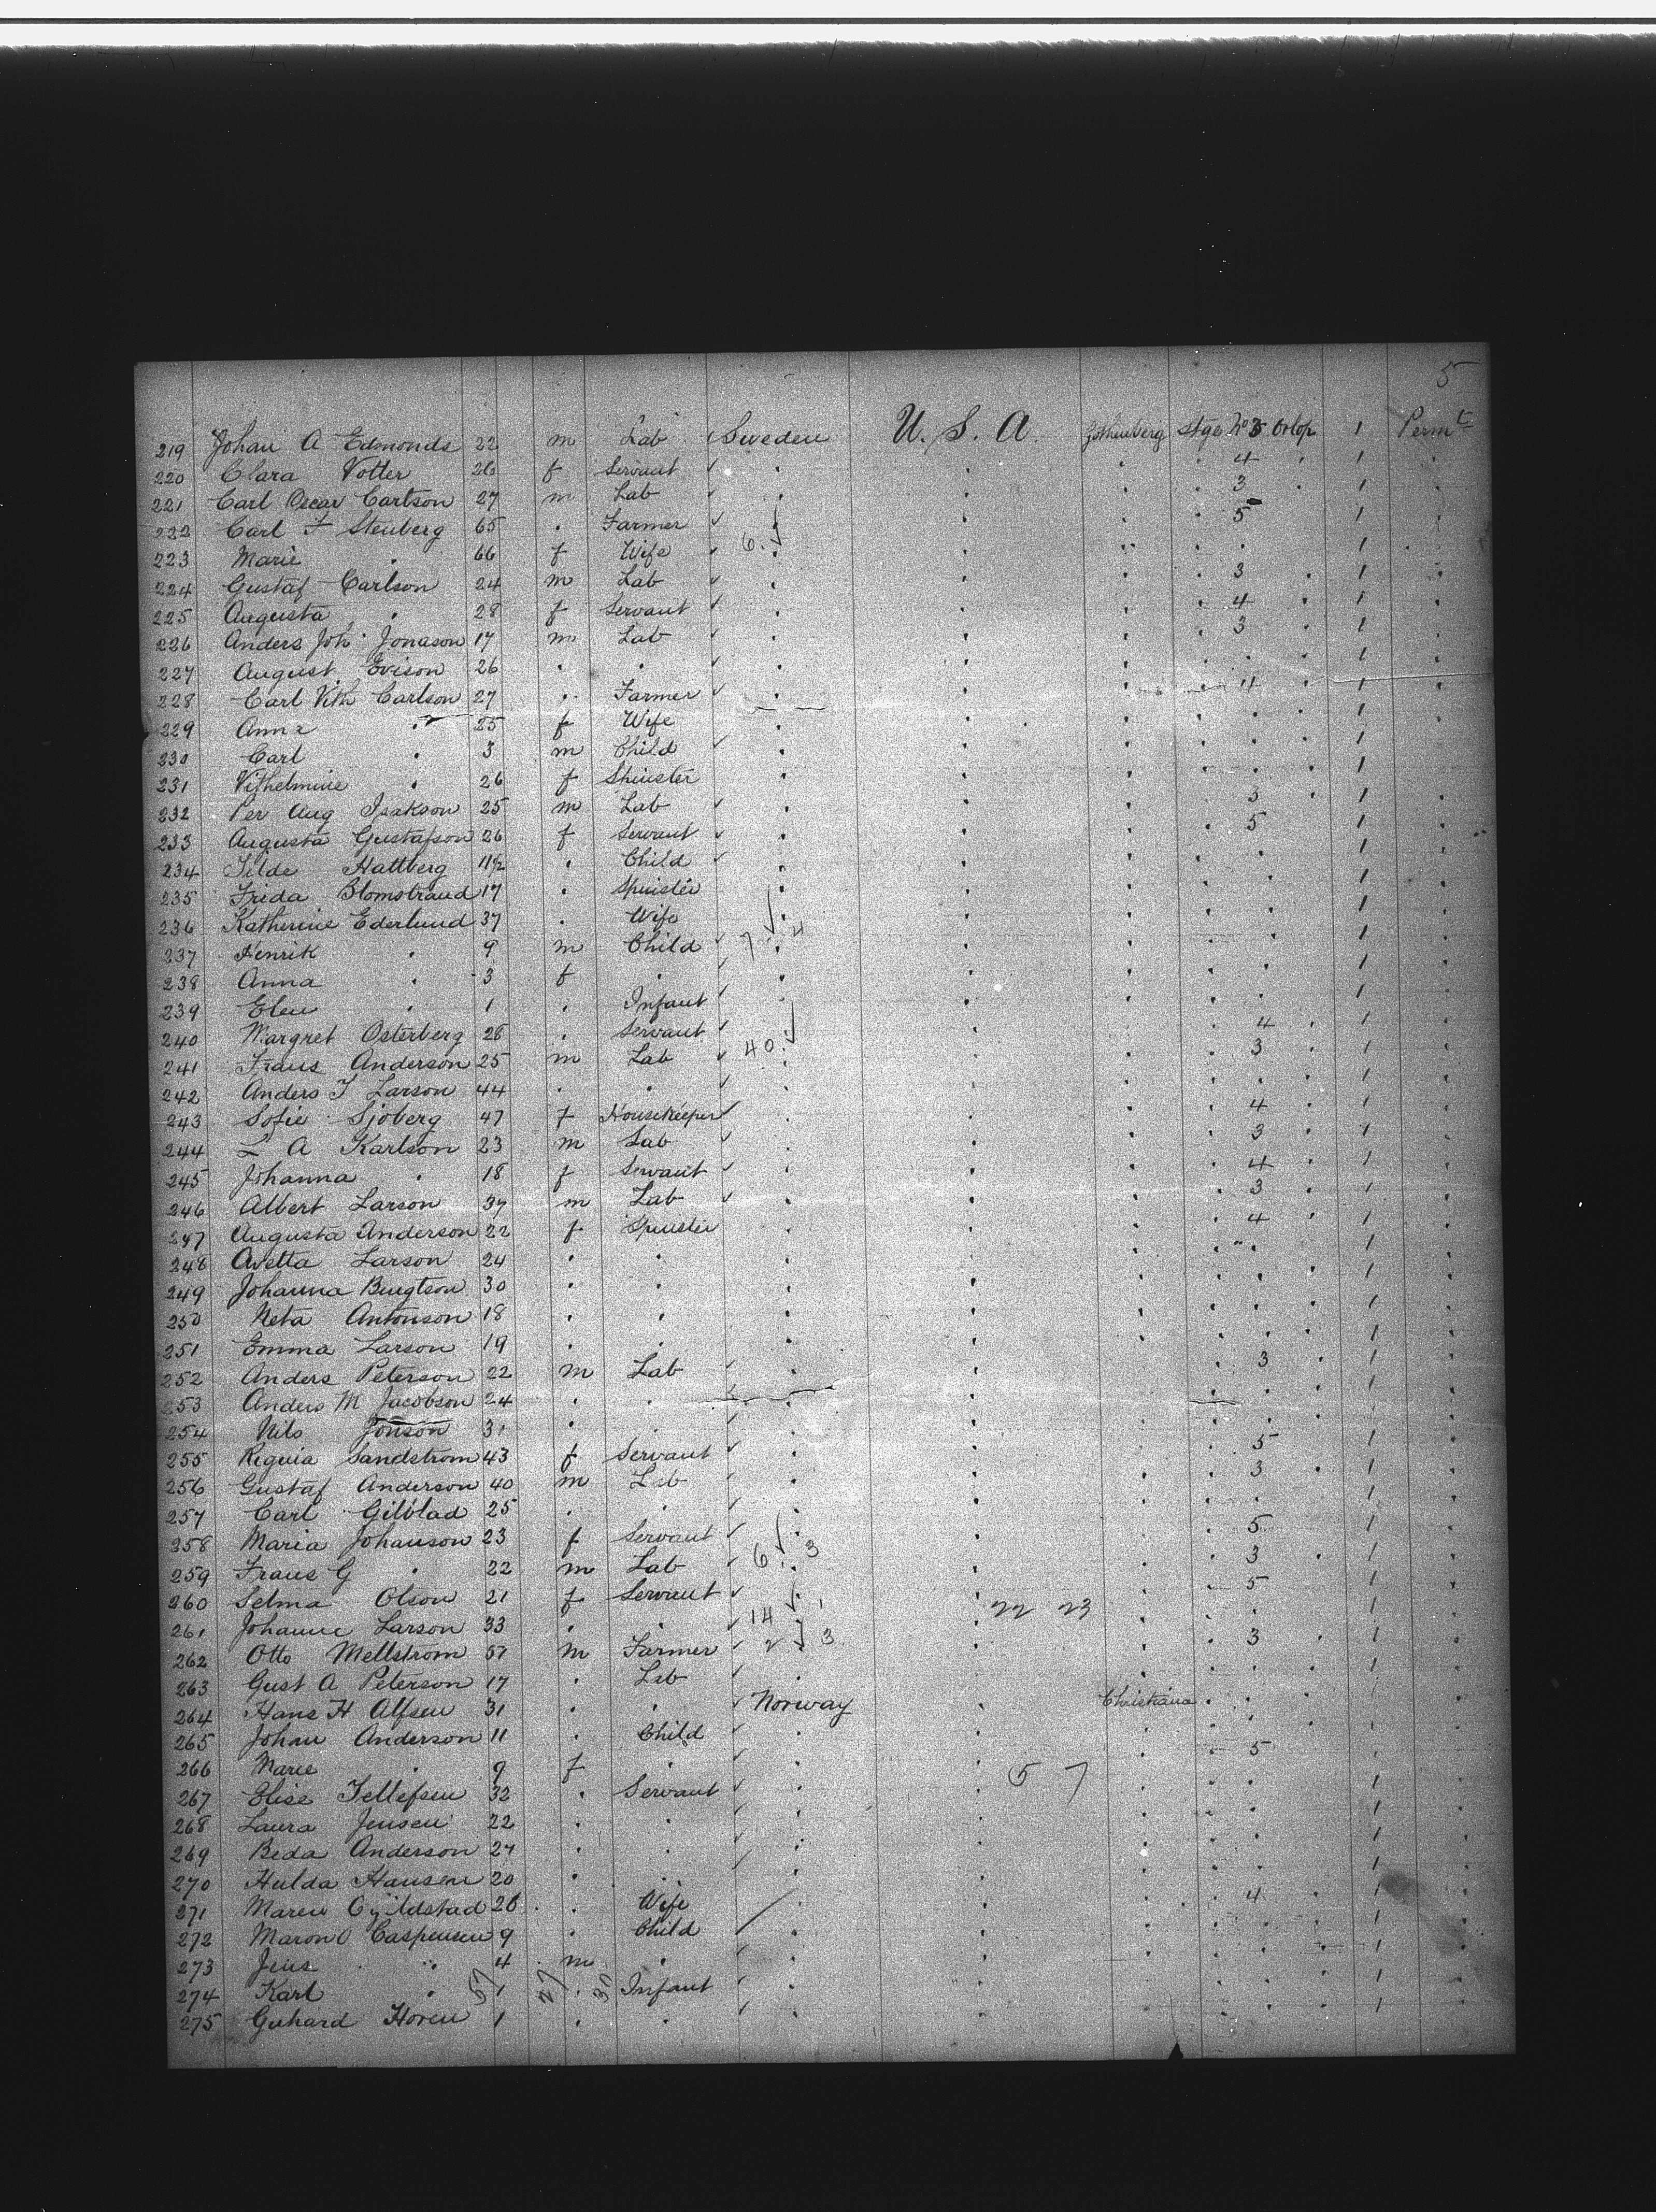 5
219 Johan A Edmonds 22 m Lab Sweden U. S. A. Gothenberg Stge No 3 Orlop 1 Permt
220 Clara Votter 26 f Servant ✓ . . . . 4 . 1 .
221 Carl Oscar Carlson 27 m Lab ✓ . . . . 3 . 1 .
222 Carl F Stenberg 65 . Farmer ✓ . . . . 5 1 .
223 Marie . 66 f Wife ✓ 6 ✓ . . . . . 1 .
224 Gustaf Carlson 24 m Lab ✓ . . . . 3 . 1 .
225 Augusta . 28 f Servant ✓ . . . . 4 . 1 .
226 Anders Joh Jonason 17 m Lab ✓ . . . . 3 . 1 .
227 August Evison 26 . . ✓ . . . . . . 1 .
228 Carl Vilh Carlson 27 . Farmer ✓ . . . . 4 . 1 .
229 Anna . 25 f Wife . . . . . . 1 .
230 Carl . 3 m Child ✓ . . . . . . 1 .
231 Vilhelmine . 26 f Spinster . . . . . . 1 .
232 Per Aug Isakson 25 m Lab ✓ . . . . 3 . 1 .
233 Augusta Gustafson 26 f Servant ✓ . . . . 5 1 .
234 Hattberg 11½ . Child ✓ . . . . . 1 .
235 Frida Blomstrand 17 . Spinster . . . . . 1 .
236 Katherine Ederlund 37 . Wife ✓ . . . . . 1 .
237 Henrik . 9 m Child ✓ 7 . 4 . . . . 1 .
238 Anna . 3 f . ✓ . . . . . 1 .
239 Elen . 1 . Infant ✓ . . . . . 1 .
240 Margret Osterberg 28 . Servant ✓ 40 ✓ . . . . 4 . 1 .
241 Frans Anderson 25 m Lab ✓ . . . . 3 . 1 .
242 Anders J Larson 44 . . ✓ . . . . . . 1 .
243 Sofie Sjoberg 47 f Housekeeper ✓ . . . . 4 . 1 .
244 L A Karlson 23 m Lab ✓ . . . . 3 . 1 .
245 Johanna . 18 f Servant ✓ . . . . 4 . 1 .
246 Albert Larson 37 m Lab ✓ . . . . 3 . 1 .
247 Augusta Anderson 22 f Spinster . . . . 4 . 1 .
248 Avetta Larson 24 . . . . . . . . 1 .
249 Johanna Bengtson 30 . . . . . . . . 1 .
250 Neta Antonson 18 . . . . . . . . 1 .
251 Emma Larson 19 . . . . . . . . 1 .
252 Anders Peterson 22 m Lab ✓ . . . . 3 . 1 .
253 Anders M Jacobson 24 . . ✓ . . . . . . 1 .
254 Nils Jonson 31 . . ✓ . . . . . . 1 .
255 Regina Sandstrom 43 f Servant ✓ . . . . 5 1 .
256 Gustaf Anderson 40 m Lab ✓ . . . . 3 . 1 .
257 Carl Gilblad 25 . . ✓ . . . . . . 1 .
258 Maria Johanson 23 f Servant ✓ . . . . 5 1 .
259 Frans G . 22 m Lab ✓ 6 ✓ . 3 . . . 3 . 1 .
260 Selma Olson 21 f Servant ✓ . . . . 5 1 .
261 Johanne Larson 33 . . 14 ✓ 1 22 23 . . . 1 .
262 Otto Mellstrom 57 m Farmer ✓ 2 ✓ 3 . . . 3 . 1 .
263 Gust A Peterson 17 . Lab ✓ . . . . . . 1 .
264 Hans H Alfsen 31 . . ✓ Norway . Christiana . . . 1 .
265 Johan Anderson 11 . Child ✓ . . . . . . 1 .
266 Marie . 9 f . ✓ . . . . 5 1 .
267 Elise Tellefsen 32 . Servant ✓ . . 5 7 . . . 1 .
268 Laura Jensen 22 . . ✓ . . . . . 1 .
269 Beda Anderson 27 . . ✓ . . . . . 1 .
270 Hulda Hansen 20 . . ✓ . . . . . 1 .
271 Maren 28 . Wife . . . . 4 . 1 .
272 Maron O Caspensen 9 . Child ✓ . . . . . . 1 .
273 Jens . 4 m . ✓ . . . . . . 1 .
274 Karl . 1 . Infant ✓ . . . . . . 1 .
57 27 30
275 Guhard Horen 1 . . ✓ . . . . . . 1 .